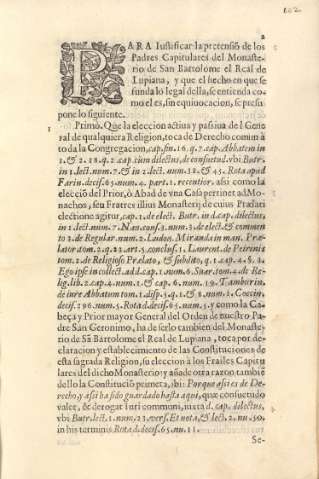 2
102
PARA Iustificar la pretensiõ de los
Padres Capitulares del Monaste-
rio de San Bartolome el Real de
Lupiana, y que el hecho en que se
funda lo legal della, se entienda co-
mo el es, sin equiuocacion, se presu-
pone lo siguiente.
1 Primo. Que la eleccion actiua y passiua del Gene
ral de qualquiera Religion, toca de Derecho comun à
toda la Congregacion, cap. fin. 16. q. 7. cap. Abbatem in
1. & 2. 18. q. 2. cap. cùm dilectus, de consuetud. vbi Butr.
in 1. lect. num. 7. & in 2. lect. num. 32. & 45. Rota apud
Farin. decis. 65. num. 4. part. 1. recentior. asi como la
elecciõ del Prior, ò Abad de vna Casa pertinet ad Mo-
nachos, seu Fratres illius Monasterij de cuius Præfati
electione agitur, cap. 1. de elect. Butr. in d. cap. dilectus,
in 1. lect. num. 7. Nau. conf. 3. num. 3. de elect. & commen
to 2. de Regular. num. 2. Ludou. Miranda in man. Præ-
lator. tom. 2. q. 22. art. 5. conclus. 1. Laurent. de Peirinis
tom. 2. de Religioso Prælato, & subdito, q. 1. cap. 4. §. 2.
Ego ipse in collect. add. cap. 1. num. 6. Suar. tom. 4. de Re-
lig. lib. 2. cap. 4. num. 1. & cap. 6. num. 39. Tamburin.
de iure Abbatum tom. 1. disp. 5. q. 1. & num. 2. Coccin.
decis. 196. num. 5. Rota d. decis. 65. num. 5. y como la Ca-
beça y Prior mayor General del Orden de nuestro Pa-
dre San Geronimo, ha de serlo tambien del Monaste-
rio de Sã Bartolome el Real de Lupiana, toca por de-
claracion y establecimiento de las Constituciones de
esta sagrada Religion, su eleccion à los Frailes Capitu
lares del dicho Monasterio y añade otra razon tambiè
dello la Constituciõ primera, ibi: Porque asi es de De-
recho, y asi ha sido guardado hasta aqui, quæ consuetudo
valet, & derogat Iuri communi, iuxta d. cap. dilectus,
vbi Butr. lect. 1. num. 23. vers. Et nota, & lect. 2. nu. 50.
in his terminis Rota d. decis. 65. nu. 11.
Se-